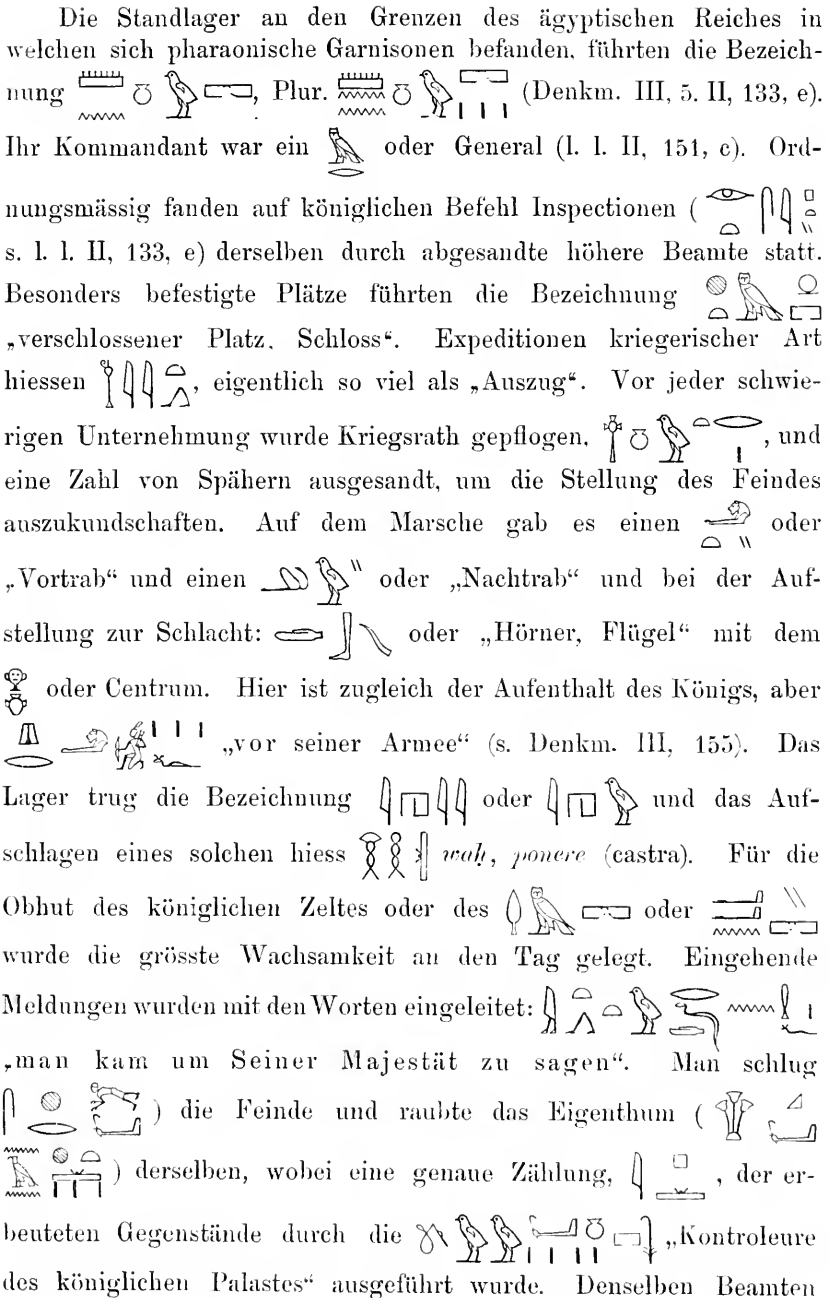 Die Standlager an den Grenzen des ägyptischen Reiches in
welchen sich pharaonische Garnisonen befanden, führten die Bezeich-
nung , Plur. (Denkm. III, 5. II, 133, e).
Ihr Kommandant war ein oder General (l. l. II, 151, c). Ord-
nungsmässig fanden auf königlichen Befehl Inspectionen (
s. l. l. II, 133, e) derselben durch abgesandte höhere Beamte statt.
Besonders befestigte Plätze führten die Bezeichnung
„verschlossener Platz, Schloss“. Expeditionen kriegerischer Art
hiessen , eigentlich so viel als „Auszug“. Vor jeder schwie-
rigen Unternehmung wurde Kriegsrath gepflogen, , und
eine Zahl von Spähern ausgesandt, um die Stellung des Feindes
auszukundschaften. Auf dem Marsche gab es einen oder
„Vortrab“ und einen oder „Nachtrab“ und bei der Auf-
stellung zur Schlacht: oder „Hörner, Flügel“ mit dem
oder Centrum. Hier ist zugleich der Aufenthalt des Königs, aber
„vor seiner Armee“ (s. Denkm. III, 155). Das
Lager trug die Bezeichnung oder und das Auf-
schlagen eines solchen hiess waḥ, ponere (castra). Für die
Obhut des königlichen Zeltes oder des oder
wurde die grösste Wachsamkeit an den Tag gelegt. Eingehende
Meldungen wurden mit den Worten eingeleitet:
„man kam um Seiner Majestät zu sagen“. Man schlug
) die Feinde und raubte das Eigenthum (
) derselben, wobei eine genaue Zählung, , der er-
beuteten Gegenstände durch die „Kontroleure
des königlichen Palastes“ ausgeführt wurde. Denselben Beamten